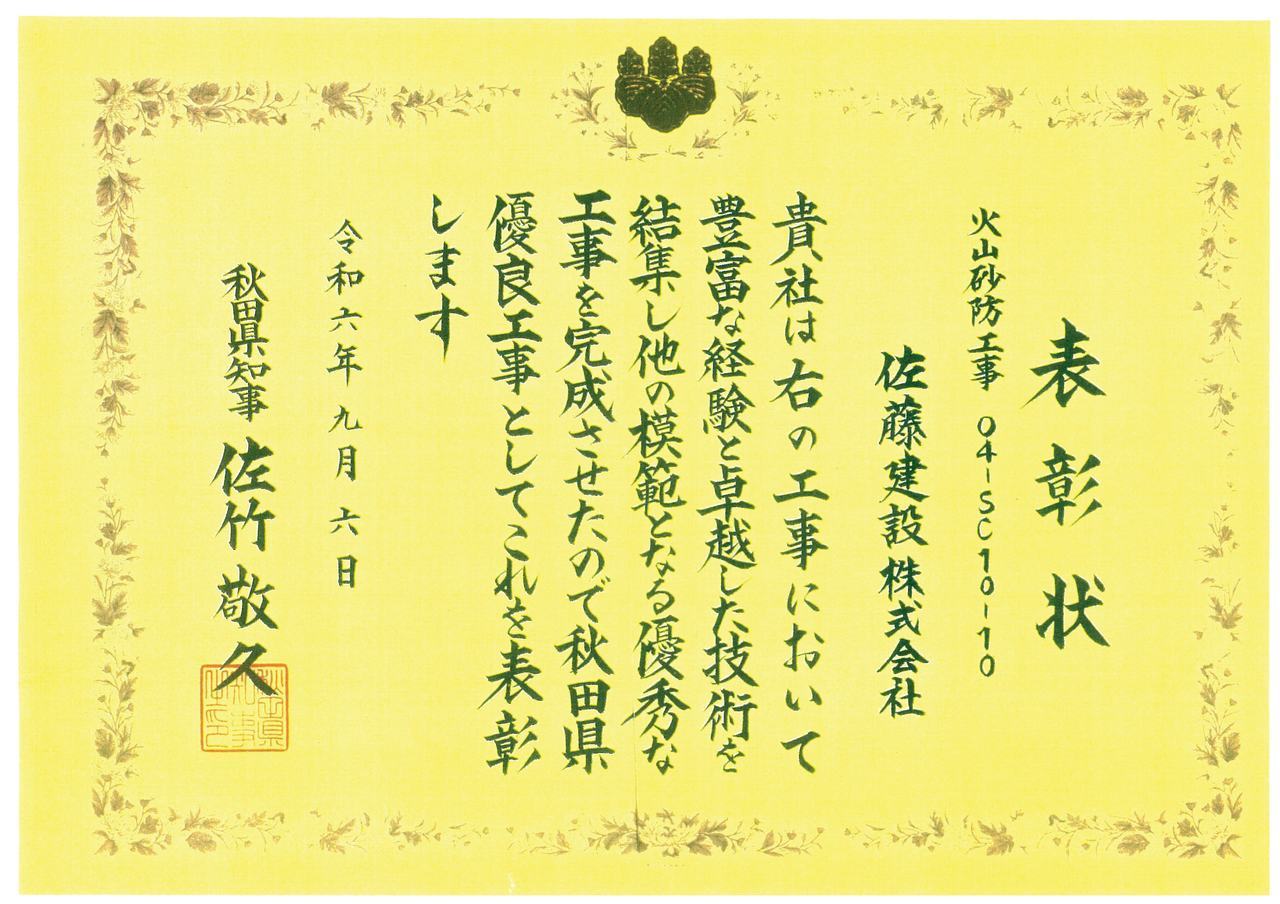 表彰状
火山砂防工事 04-SC10-10
佐藤建設株式会社
貴社は右の工事において
豊富な経験と卓越した技術を
結集し他の模範となる優秀な
工事を完成させたので秋田県
優良工事としてこれを表彰
します
令和六年九月六日
秋田県知事 佐竹敬久